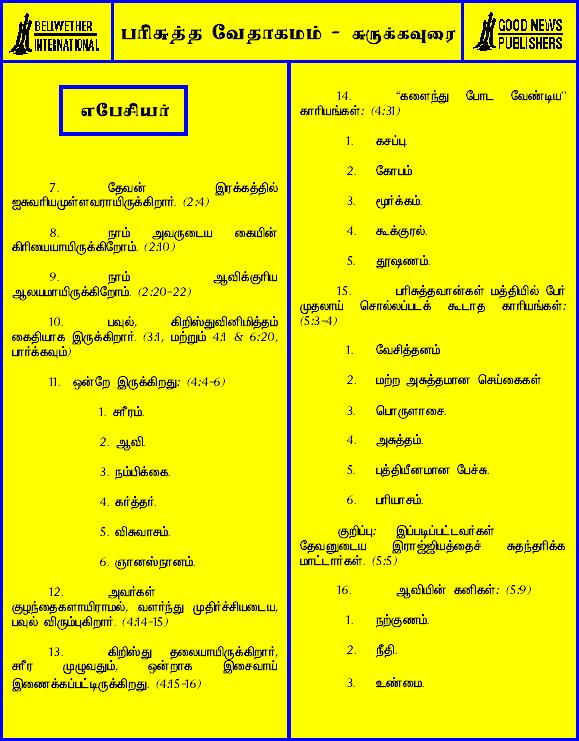 BELLWETHER
INTERNATIONAL
பரிசுத்த வேதாகமம் - சுருக்கவுரை
GOOD NEWS
PUBLISHERS
எபேசியர்
7. தேவன் இரக்கத்தில்
ஐசுவரியமுள்ளவராயிருக்கிறார். (2:4)
8. நாம் அவருடைய கையின்
கிரியையாயிருக்கிறோம். (2:10)
9. நாம் ஆவிக்குரிய
ஆலயமாயிருக்கிறோம். (2:20-22)
10. பவுல், கிறிஸ்துவினிமித்தம்
கைதியாக இருக்கிறார். (3:1, மற்றும் 4:1 & 6:20,
பார்க்கவும்)
11. ஒன்றே இருக்கிறது: (4:4-6)
1. சரீரம்.
2. ஆவி.
3. நம்பிக்கை.
4. கர்த்தர்.
5. விசுவாசம்.
6. ஞானஸ்நானம்.
12. அவர்கள்
குழந்தைகளாயிராமல், வளர்ந்து முதிர்ச்சியடைய,
பவுல் விரும்புகிறார். (4:14-15)
13. கிறிஸ்து தலையாயிருக்கிறார்,
சரீர முழுவதும், ஒன்றாக இசைவாய்
இணைக்கப்பட்டிருக்கிறது. (4:15-16)
14. “களைந்து போட வேண்டிய”
காரியங்கள்: (4:31)
1. கசப்பு.
2. கோபம்
3. மூர்க்கம்.
4. கூக்குரல்.
5. தூஷணம்.
15. பரிசுத்தவான்கள் மத்தியில் பேர்
முதலாய் சொல்லப்படக் கூடாத காரியங்கள்:
(5:3-4)
1. வேசித்தனம்
2. மற்ற அசுத்தமான செய்கைகள்
3. பொருளாசை.
4. அசுத்தம்.
5. புத்தியீனமான பேச்சு.
6. பரியாசம்.
குறிப்பு: இப்படிப்பட்டவர்கள்
தேவனுடைய இராஜ்ஜியத்தைச் சுதந்தரிக்க
மாட்டார்கள். (5:5)
16. ஆவியின் கனிகள்: (5:9)
1. நற்குணம்.
2. நீதி.
3. உண்மை.